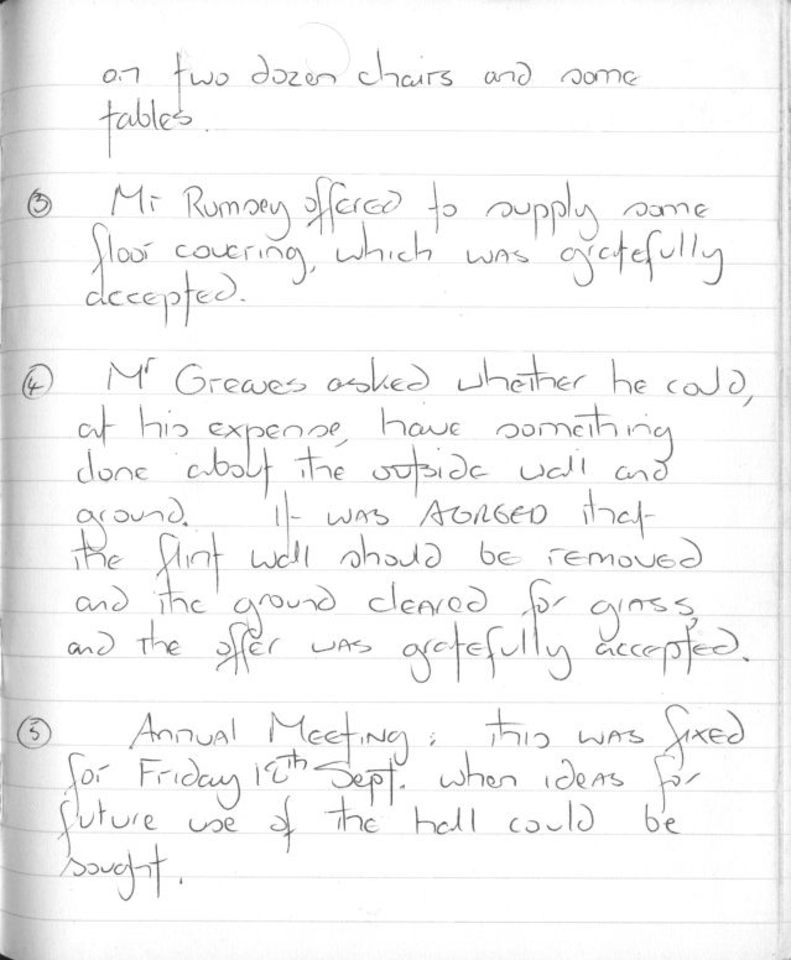 on two dozen chairs and some
tables.
③ Mr Rumsey offered to supply some
floor covering, which was gratefully
accepted.
④ Mr Greaves asked whether he could,
at his expense, have something
done about the outside wall and
ground. It was AGREED that
the flint wall should be removed
and the ground cleared for grass,
and the offer was gratefully accepted.
⑤ Annual Meeting: this was fixed
for Friday 12th Sept. when ideas for
future use of the hall could be
sought.